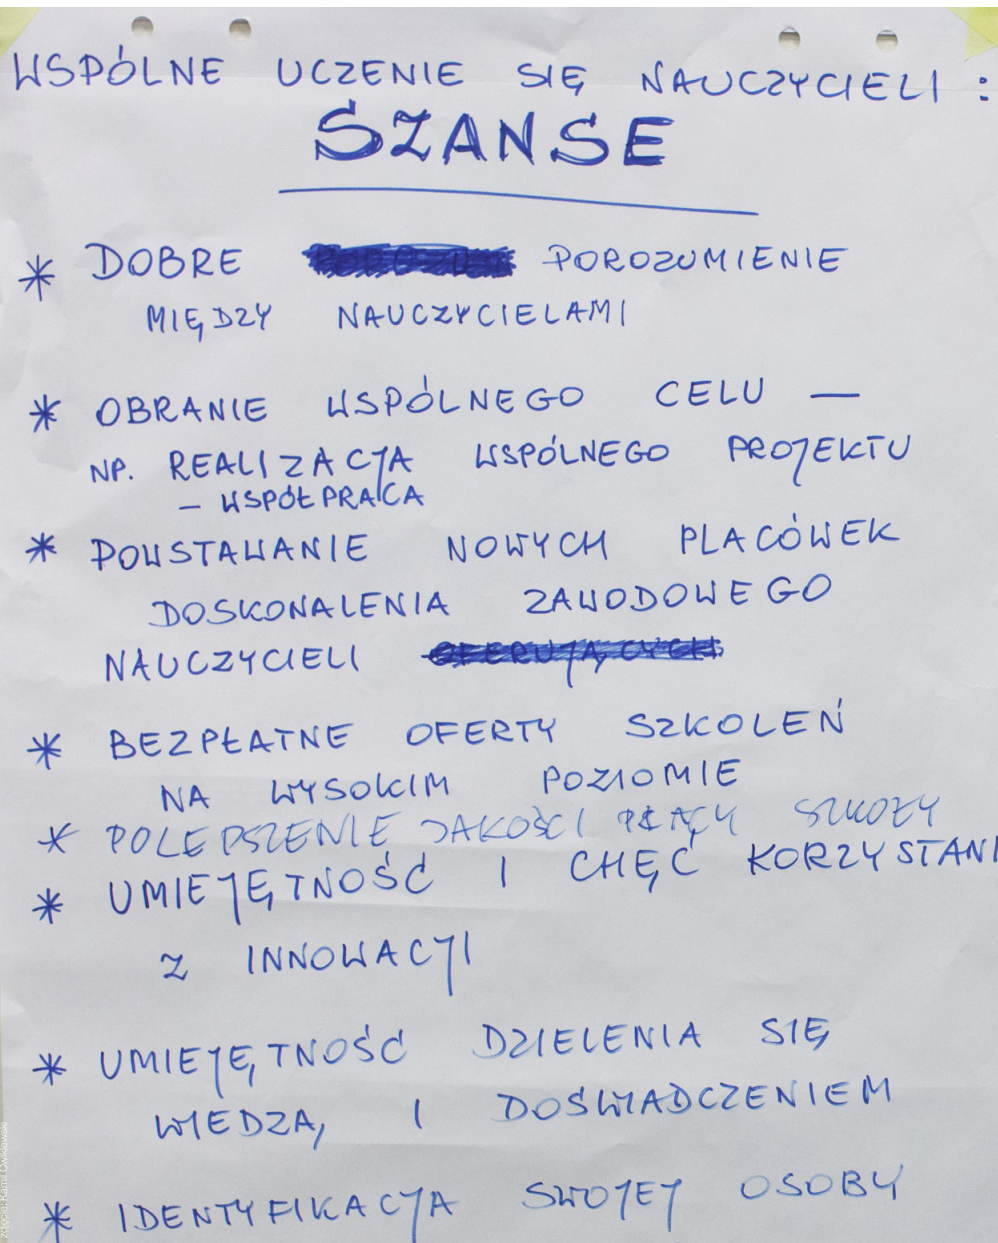 WSPÓLNE UCZENIE SIĘ NAUCZYCIELI :
SZANSE
* DOBRE POROZUMIENIE
MIĘDZY NAUCZYCIELAMI
* OBRANIE WSPÓLNEGO CELU —
NP. REALIZACJA WSPÓLNEGO PROJEKTU
– WSPÓŁPRACA
* POWSTAWANIE NOWYCH PLACÓWEK
DOSKONALENIA ZAWODOWEGO
NAUCZYCIELI
* BEZPŁATNE OFERTY SZKOLEŃ
NA WYSOKIM POZIOMIE
* POLEPSZENIE JAKOŚCI PRACY SZKOŁY
* UMIEJĘTNOŚĆ I CHĘĆ KORZYSTANI
Z INNOWACJI
* UMIEJĘTNOŚĆ DZIELENIA SIĘ
WIEDZĄ I DOŚWIADCZENIEM
* IDENTYFIKACJA SWOJEJ OSOBY
zdjęcie: Kamil Ćwiklewski